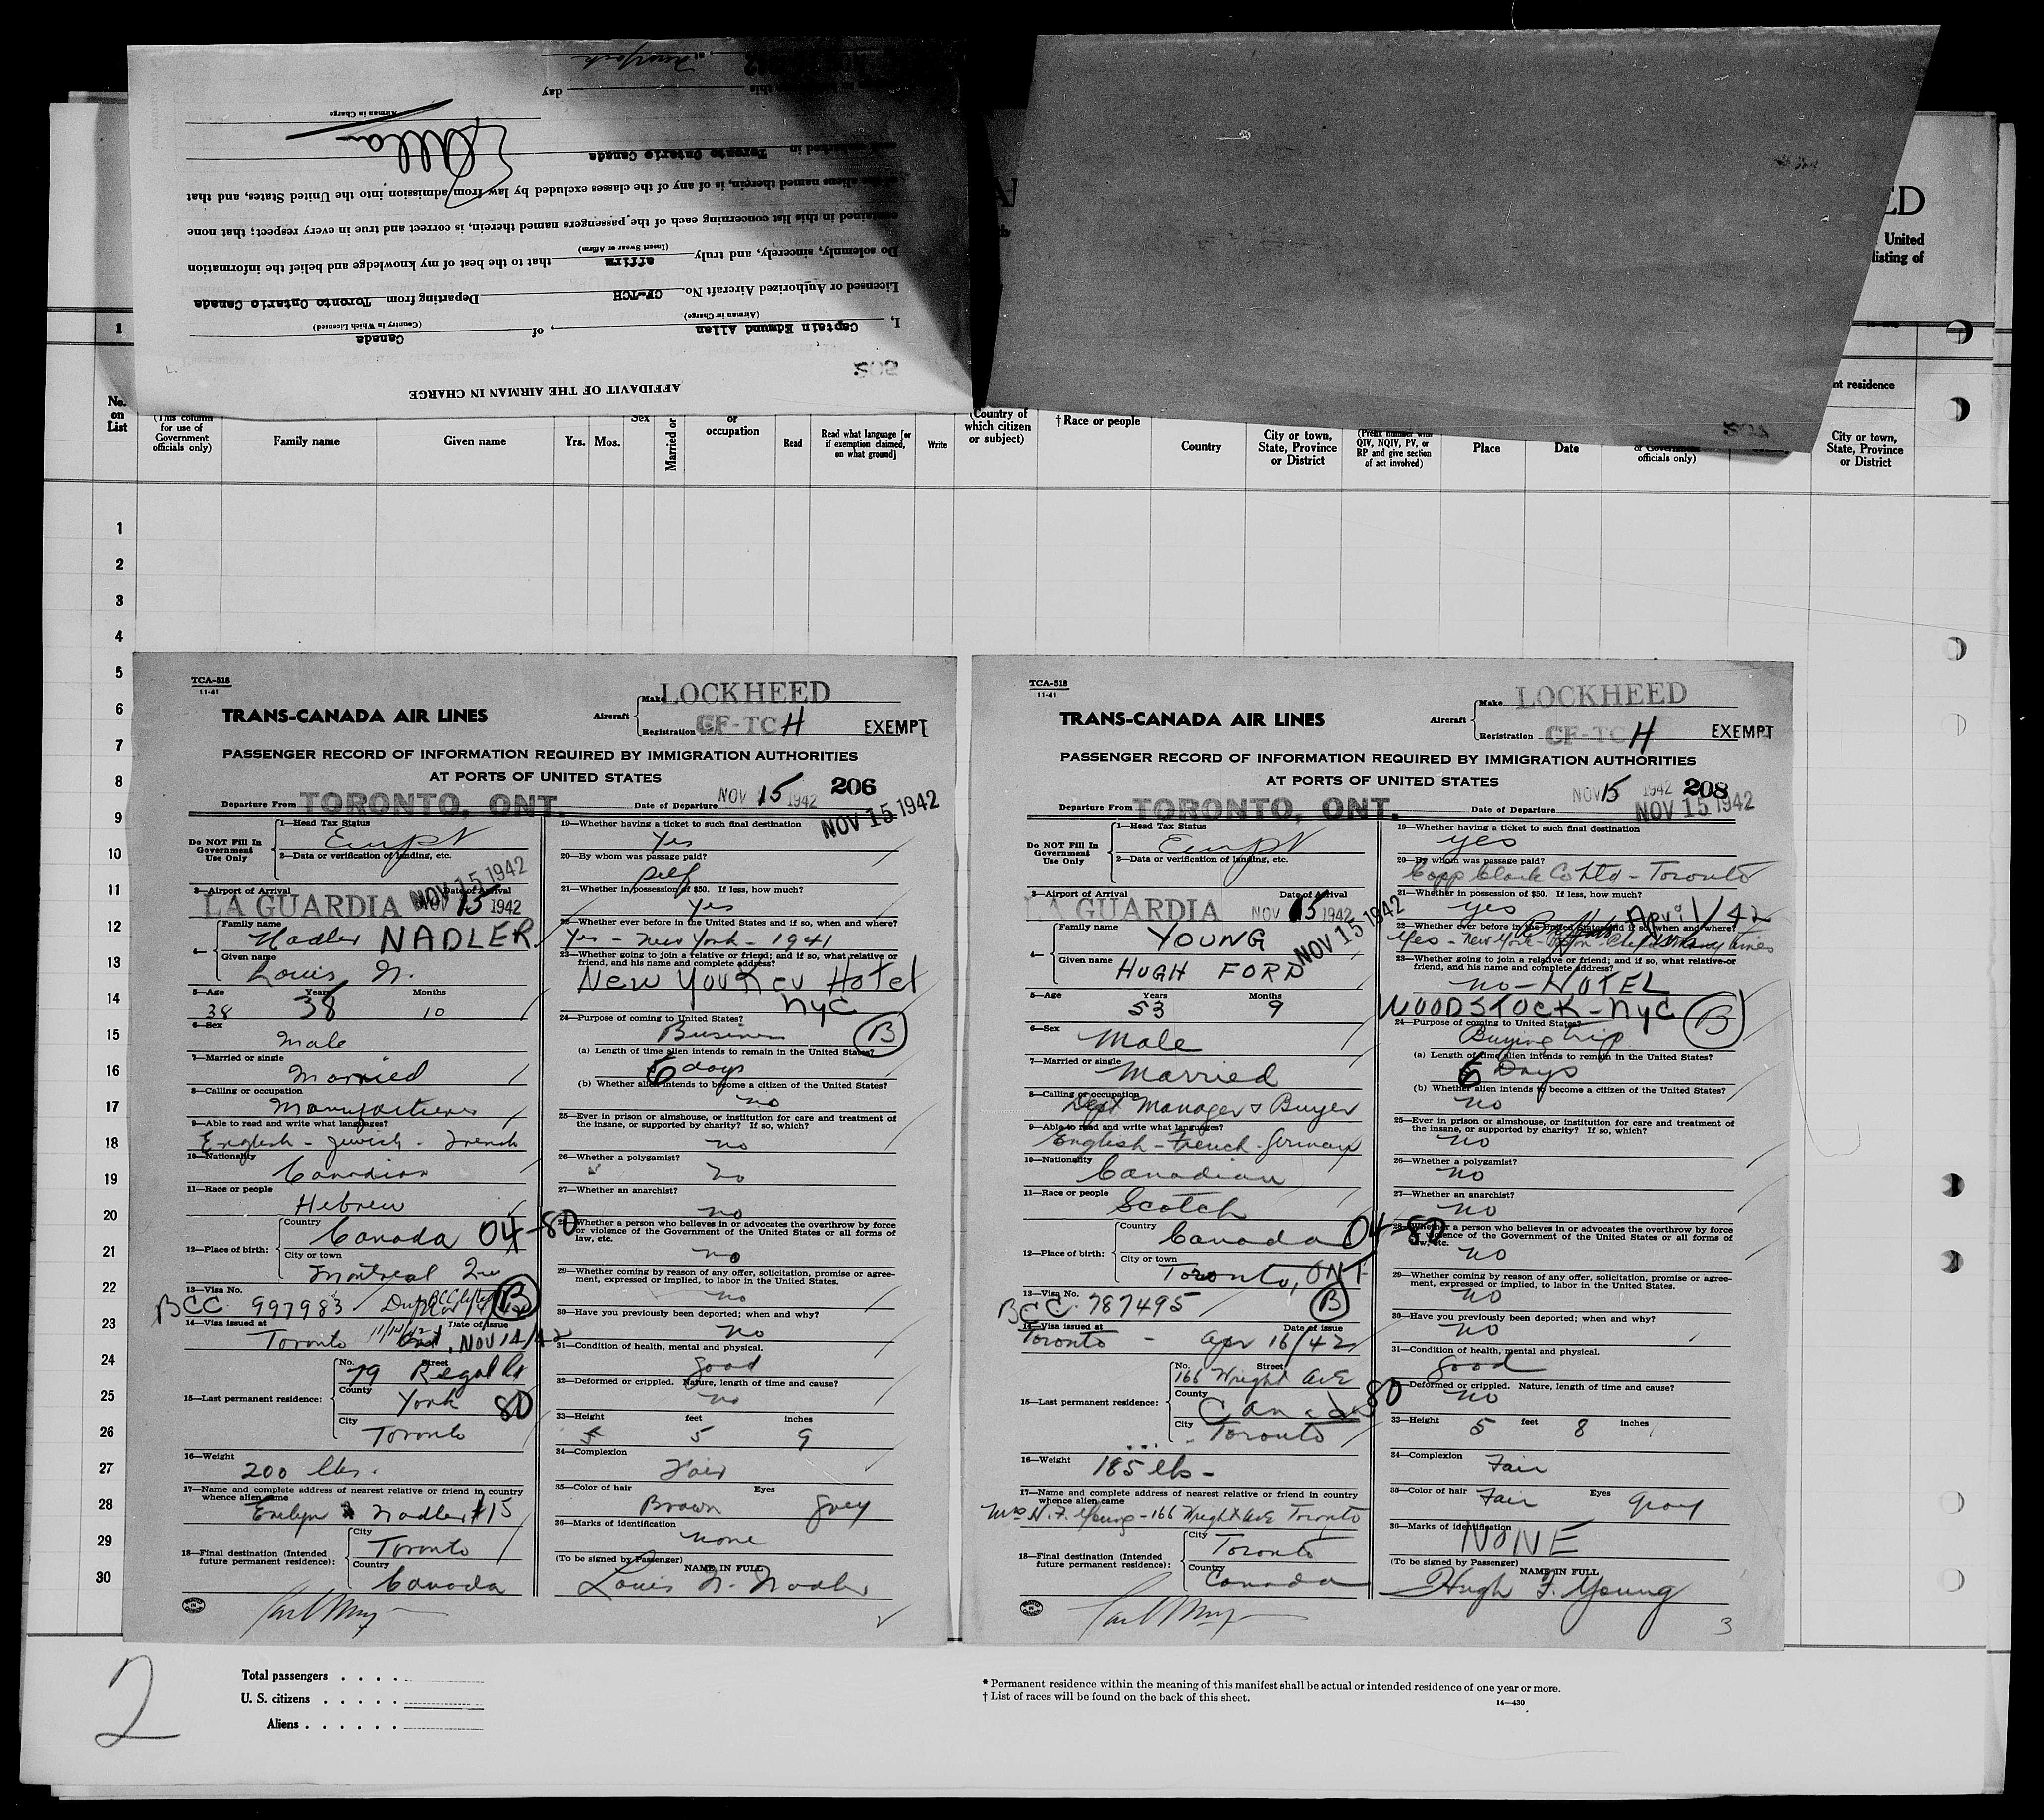 AFFIDAVIT OF THE AIRMAN IN CHARGE
208
I, Captain Edmund Allan, of Canada
(Airman in Charge) (Country in Which Licensed)
Licensed or Authorized Aircraft No. CF-TCH Departing from Toronto Ontario Canada
Do solemnly, sincerely, and truly affirm that to the best of my knowledge and belief the information
(Insert Swear or Affirm)
contained in this list concerning each of the passengers named therein, is correct and true in every respect; that none
of the aliens named therein, is of any of the classes excluded by law from admission into the United States, and that
Toronto Ontario Canada
E Allan
Airman in Charge
this day
New York
ED
United
listing of
1
nt residence
No. on List
(This column for use of Government officials only)
Family name
Given name
Yrs.
Mos.
Sex
Married or
or occupation
Read
Read what language [or if exemption claimed, on what ground]
Write
(Country of which citizen or subject)
†Race or people
Country
City or town, State, Province or District
(Prefix number with QIV, NQIV, PV, or RP and give section of act involved)
Place
Date
of Government officials only)
City or town, State, Province or District
1
2
3
4
5
6
7
8
9
10
11
12
13
14
15
16
17
18
19
20
21
22
23
24
25
26
27
28
29
30
TCA-518
11-41
TRANS-CANADA AIR LINES
Aircraft
Make LOCKHEED
Registration CF-TCH
EXEMPT
PASSENGER RECORD OF INFORMATION REQUIRED BY IMMIGRATION AUTHORITIES
AT PORTS OF UNITED STATES
206
Departure From TORONTO, ONT. Date of Departure NOV 15 1942
NOV 15 1942
Do NOT Fill In Government Use Only
1—Head Tax Status
Exempt
2—Data or verification of landing, etc.
3—Airport of Arrival Date of Arrival
LA GUARDIA NOV 15 1942
NOV 15 1942
4—
Family name
Nadler NADLER
Given name
Louis N.
5—Age Years Months
38 38 10
6—Sex
Male
7—Married or single
Married
8—Calling or occupation
Manufacturer
9—Able to read and write what languages?
English - Jewish - French
10—Nationality
Canadian
11—Race or people
Hebrew
12—Place of birth:
Country
Canada 04-80
City or town
Montreal Que
13—Visa No.
BCC 997983 B
14—Visa issued at Date of Issue
Toronto Ont. Nov 14/42
15—Last permanent residence:
No. Street
79 Regal Rd
County
York 80
City
Toronto
16—Weight
200 lbs.
17—Name and complete address of nearest relative or friend in country whence alien came
Evelyn Nadler #15
18—Final destination (Intended future permanent residence):
City
Toronto
Country
Canada
19—Whether having a ticket to such final destination
Yes
20—By whom was passage paid?
Self
21—Whether in possession of $50. If less, how much?
Yes
22—Whether ever before in the United States and if so, when and where?
Yes - New York - 1941
23—Whether going to join a relative or friend; and if so, what relative or friend, and his name and complete address?
New Yorker Hotel
NYC
24—Purpose of coming to United States?
Business B
(a) Length of time alien intends to remain in the United States?
6 days
(b) Whether alien intends to become a citizen of the United States?
no
25—Ever in prison or almshouse, or institution for care and treatment of the insane, or supported by charity? If so, which?
no
26—Whether a polygamist?
no
27—Whether an anarchist?
no
28—Whether a person who believes in or advocates the overthrow by force or violence of the Government of the United States or all forms of law, etc.
no
29—Whether coming by reason of any offer, solicitation, promise or agreement, expressed or implied, to labor in the United States.
no
30—Have you previously been deported; when and why?
no
31—Condition of health, mental and physical.
good
32—Deformed or crippled. Nature, length of time and cause?
no
33—Height feet inches
5 9
34—Complexion
Fair
35—Color of hair Eyes
Brown Grey
36—Marks of identification
none
(To be signed by Passenger) NAME IN FULL
Louis N. Nadler
TCA-518
11-41
TRANS-CANADA AIR LINES
Aircraft
Make LOCKHEED
Registration CF-TCH
EXEMPT
PASSENGER RECORD OF INFORMATION REQUIRED BY IMMIGRATION AUTHORITIES
AT PORTS OF UNITED STATES
208
Departure From TORONTO, ONT. Date of Departure NOV 15 1942
NOV 15 1942
Do NOT Fill In Government Use Only
1—Head Tax Status
Exempt
2—Data or verification of landing, etc.
3—Airport of Arrival Date of Arrival
LA GUARDIA NOV 15 1942
NOV 15 1942
4—
Family name
YOUNG
Given name
HUGH FORD
5—Age Years Months
53 9
6—Sex
Male
7—Married or single
Married
8—Calling or occupation
Dept Manager & Buyer
9—Able to read and write what languages?
English - French - German
10—Nationality
Canadian
11—Race or people
Scotch
12—Place of birth:
Country
Canada 04-80
City or town
Toronto, ONT
13—Visa No.
BCC 787495 B
14—Visa issued at Date of Issue
Toronto - Apr 16/42
15—Last permanent residence:
No. Street
166 Wright Ave
County
Canada 80
City
Toronto
16—Weight
185 lbs -
17—Name and complete address of nearest relative or friend in country whence alien came
Mrs H. F. Young - 166 Wright Ave Toronto
18—Final destination (Intended future permanent residence):
City
Toronto
Country
Canada
19—Whether having a ticket to such final destination
yes
20—By whom was passage paid?
Copp Clark Co Ltd - Toronto
21—Whether in possession of $50. If less, how much?
yes
22—Whether ever before in the United States and if so, when and where?
April/42
Yes - New York - Boston -
23—Whether going to join a relative or friend; and if so, what relative or friend, and his name and complete address?
no - HOTEL
WOODSTOCK - NYC B
24—Purpose of coming to United States?
Buying trip
(a) Length of time alien intends to remain in the United States?
6 Days
(b) Whether alien intends to become a citizen of the United States?
no
25—Ever in prison or almshouse, or institution for care and treatment of the insane, or supported by charity? If so, which?
no
26—Whether a polygamist?
no
27—Whether an anarchist?
no
28—Whether a person who believes in or advocates the overthrow by force or violence of the Government of the United States or all forms of law, etc.
no
29—Whether coming by reason of any offer, solicitation, promise or agreement, expressed or implied, to labor in the United States.
no
30—Have you previously been deported; when and why?
no
31—Condition of health, mental and physical.
good
32—Deformed or crippled. Nature, length of time and cause?
no
33—Height feet inches
5 8
34—Complexion
Fair
35—Color of hair Eyes
Fair Gray
36—Marks of identification
NONE
(To be signed by Passenger) NAME IN FULL
Hugh F. Young
3
2
Total passengers . . . .
U. S. citizens . . . . .
Aliens . . . . . .
* Permanent residence within the meaning of this manifest shall be actual or intended residence of one year or more.
† List of races will be found on the back of this sheet.
14—430